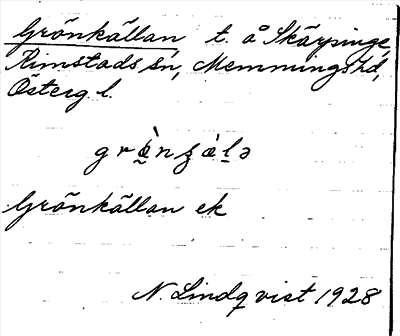 Grönkällan t. å Skärpinge,
Rimstads sn, Memmings hd,
Östergl.
Grönkällan ek
N. Lindqvist 1928